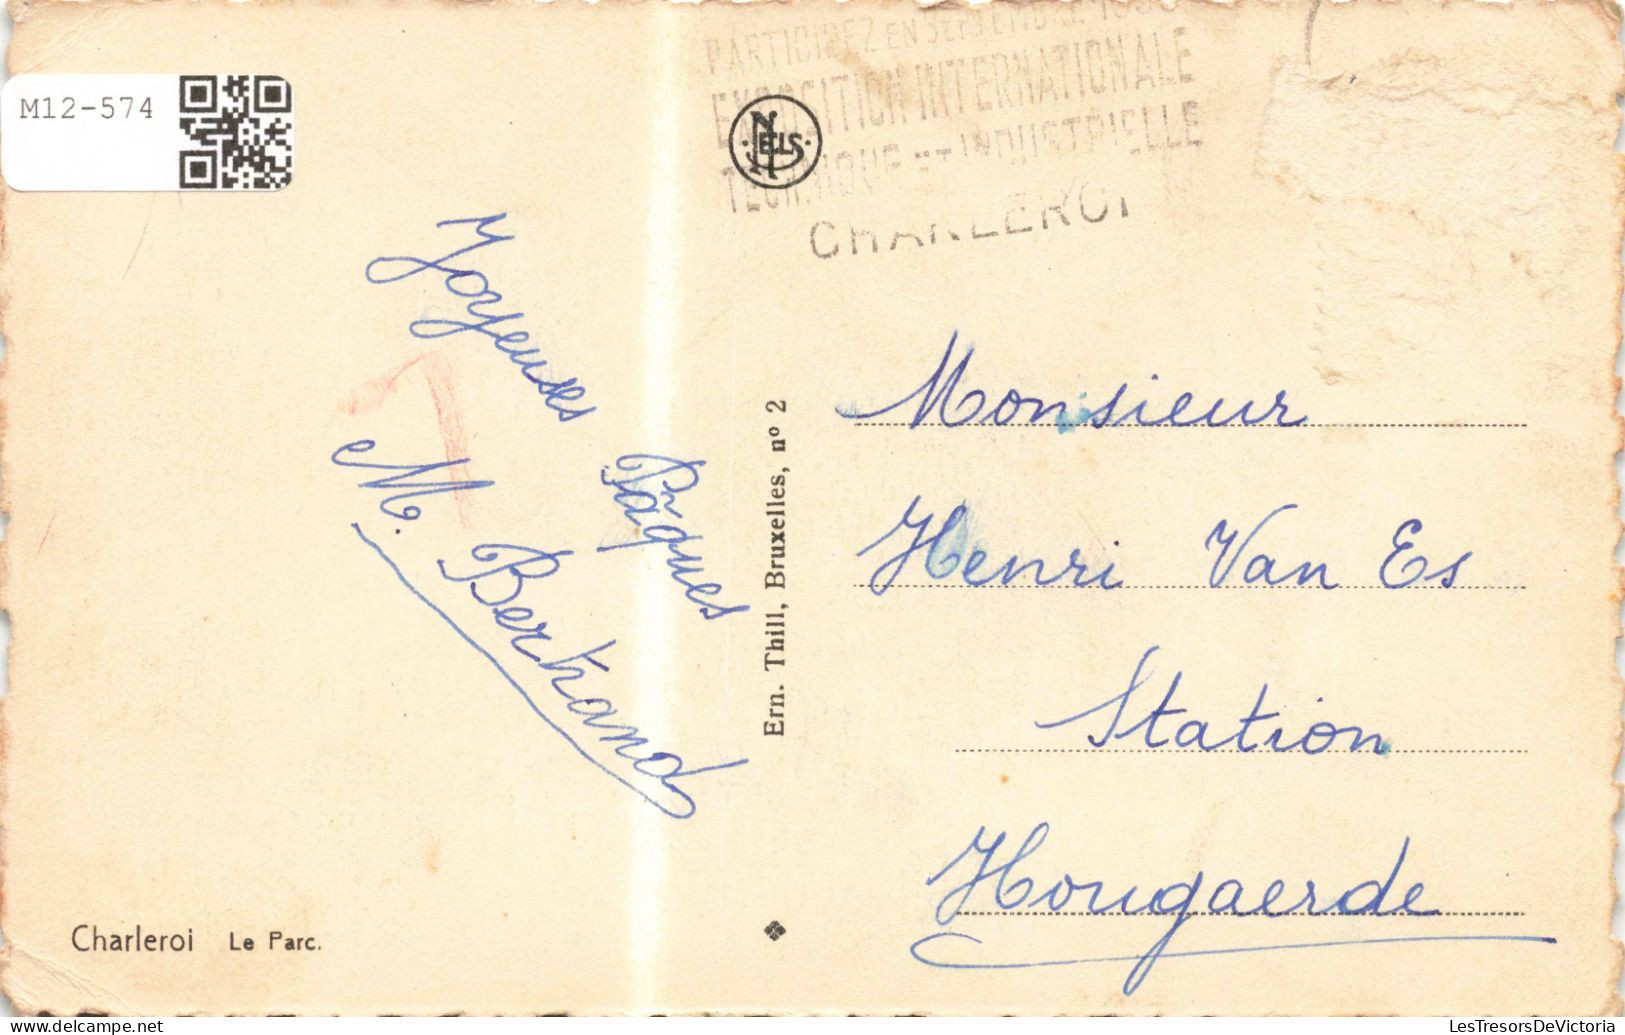 M12-574
PARTICIPEZ EN SEPTEMBRE
EXPOSITION INTERNATIONALE
TECHNIQUE ET INDUSTRIELLE
CHARLEROI
NELS
Joyeuses Pâques
M. Bertrand
Ern. Thill, Bruxelles, nº 2
Monsieur
Henri Van Es
Station
Hougaerde
Charleroi Le Parc.
delcampe.net
LesTresorsDeVictoria